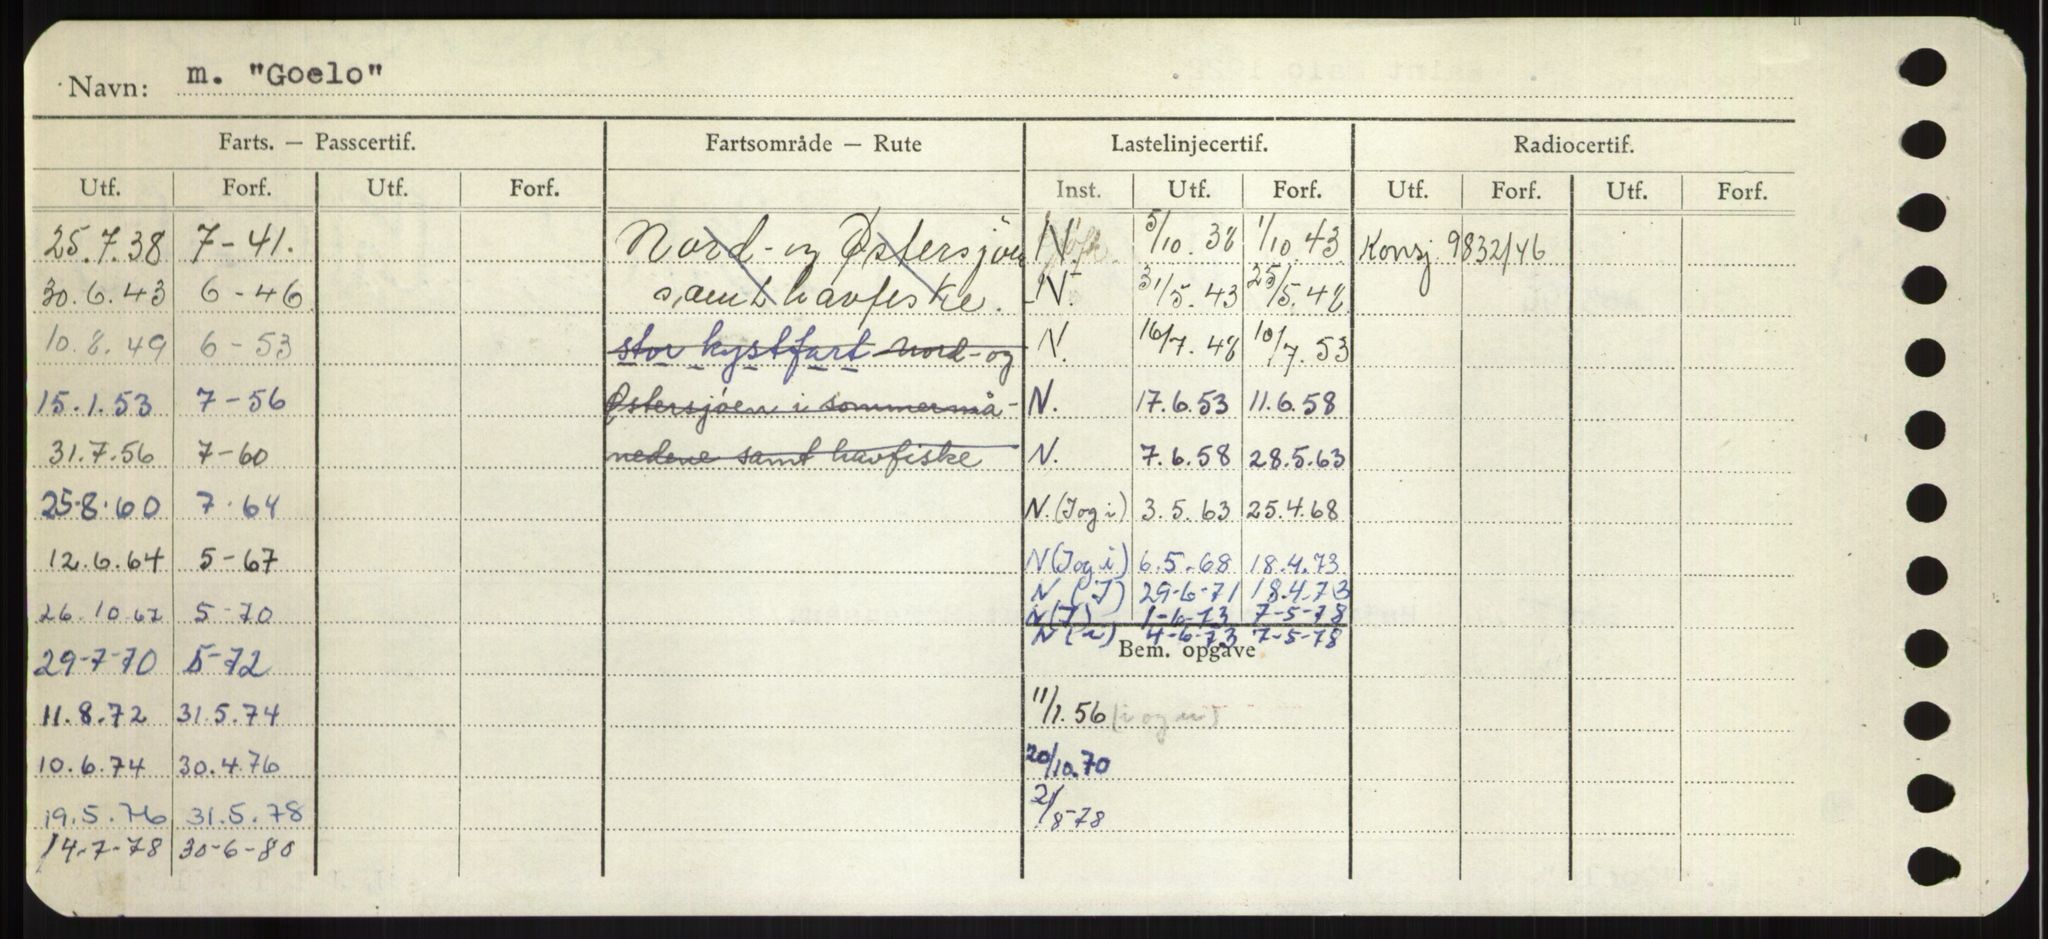 Navn: m. "Goelo"
Farts. — Passcertif. Fartsområde — Rute Lastelinjecertif. Radiocertif.
Utf. Forf. Utf. Forf. Inst. Utf. Forf. Utf. Forf. Utf. Forf.
25.7.38 7-41. Nord- og Østersjöen N. 5/10.38 1/10.43 Konsj 9832/46
30.6.43 6-46 samt havfiske. N. 31/5.43 25/5.48
10.8.49 6-53 stor kystfart nord- og N. 16/7.48 10/7.53
15.1.53 7-56 Østersjøen i sommermå- N. 17.6.53 11.6.58
31.7.56 7-60 nedene samt havfiske N. 7.6.58 28.5.63
25-8-60 7-64 N.(J og i) 3.5.63 25.4.68
12.6.64 5-67 N(J og i) 6.5.68 18.4.73
N (J) 29-6-71 18.4.73
26.10.67 5-70 N(J) 1-6-73 7-5-78
N (i) 4-6-73 7-5-78
29-7-70 5-72 Bem. opgave
11.8.72 31.5.74 11/1.56
10.6.74 30.4.76 20/10.70
19.5.76 31.5.78 2/8-78
14-7-78 30-6-80